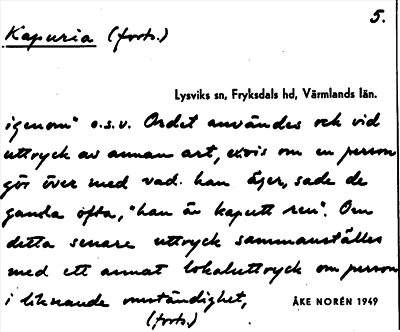 5.
Kapuria (forts.)
Lysviks sn, Fryksdals hd, Värmlands län.
igenom" o.s.v. Ordet användes ock vid
uttryck av annan art, exvis om en person
gör över med vad han äger, sade de
gamla ofta, "han är kaputt ren". Om
detta senare uttryck sammanställes
med ett annat lokaluttryck om person
i liknande omständighet,
(forts.)
ÅKE NORÉN 1949